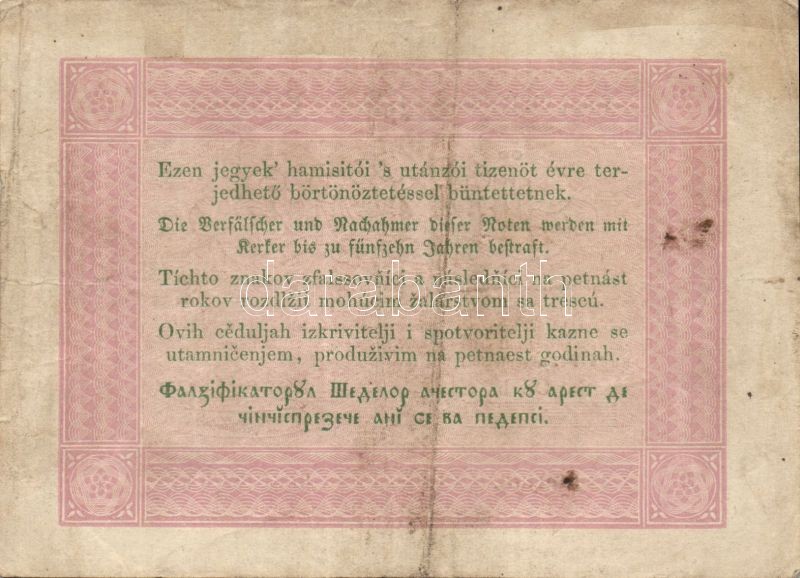 Ezen jegyek' hamisitói 's utánzói tizenöt évre ter-
jedhető börtönöztetéssel büntettetnek.
Die Verfälscher und Nachahmer dieser Noten werden mit
Kerker bis zu fünfzehn Jahren bestraft.
Tíchto znakov zfalssovňíci a následníci na petnást
rokov rozdlžiť mohúcim žalárstvom sa trescú.
darabanth
Ovih cěduljah izkrivitelji i spotvoritelji kazne se
utamničenjem, produživim na petnaest godinah.
Фалзіфікаторꙋл Шеделор ачестора кꙋ арест де
чінчіспрезече ані се ва педепсі.